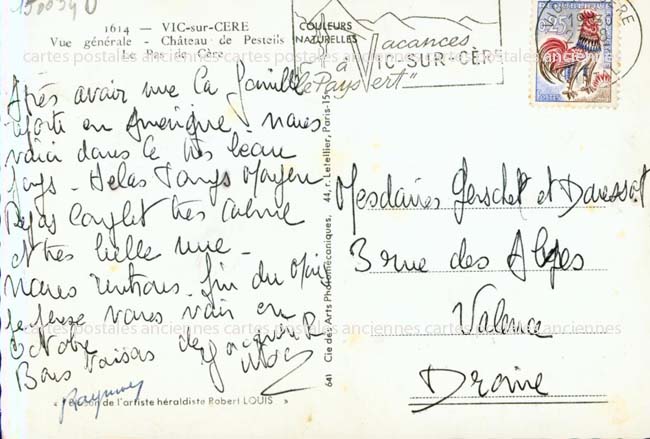 150034 U
1614 — VIC-sur-CERE
Vue générale - Château de Pesteils
Le Pas de Cère
COULEURS
NATURELLES
Vacances
à VIC-SUR-CÈRE
le Pays vert"
0,25
POSTES
cartes postales anciennes cartes postales anciennes cartes postales anciennes
Après avoir vue la famille
en Amérique. nous
voici dans ce très beau
pays. Helas Temps Moyen
Repos Complet très calme
et très belle vue -
nous rentrons fin du Mois
Je pense vous voir en
Octobre
Bons Baisers de Jacques
Raymond
« Blason de l'artiste héraldiste Robert LOUIS »
641 Cie des Arts Photomécaniques, 44, r. Letellier, Paris-15e
Mesdames et
3 rue des Alpes
Valence
Drome
cartes postales anciennes cartes postales anciennes cartes postales anciennes